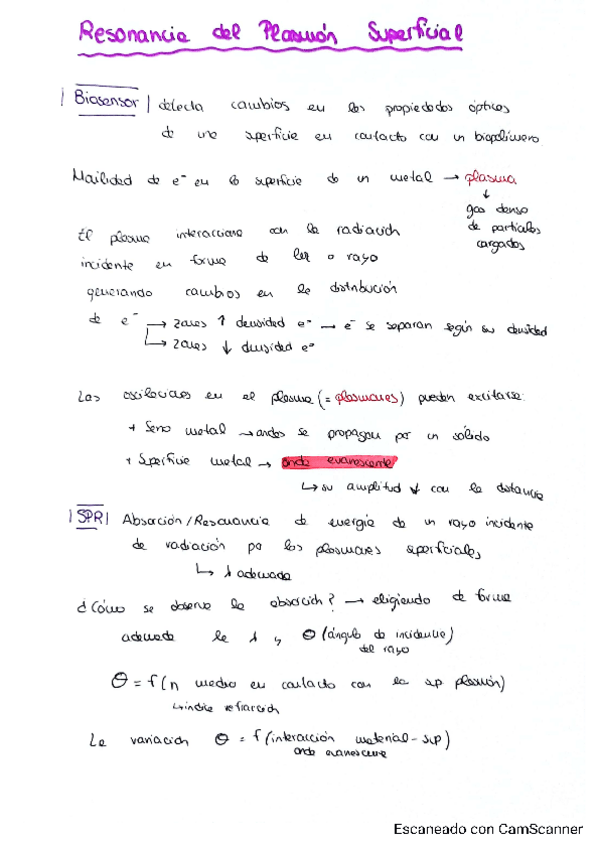 Resonancia del Plasmón Superficial
|Biosensor| detecta cambios en las propiedades ópticas
de una superficie en contacto con un biopolímero
Movilidad de e⁻ en la superficie de un metal → plasma
↓
gas denso
de partículas
cargadas
El plasma interacciona con la radiación
incidente en forma de luz o rayo
generando cambios en la distribución
de e⁻ → zonas ↑ densidad e⁻ → e⁻ se separan según su densidad
↳ zonas ↓ densidad e⁻
Las oscilaciones en el plasma (= plasmones) pueden excitarse:
+ Seno metal → ondas se propagan por un sólido
+ Superficie metal → onda evanescente
↳ su amplitud ↓ con la distancia
|SPR| Absorción / Resonancia de energía de un rayo incidente
de radiación por los plasmones superficiales
↳ λ adecuada
¿Cómo se observa la absorción? → eligiendo de forma
adecuada la λ y θ (ángulo de incidencia)
del rayo
θ = f (n medio en contacto con la sup. plasmón)
↳ índice refracción
La variación θ = f (interacción material - sup)
onda evanescente
Escaneado con CamScanner